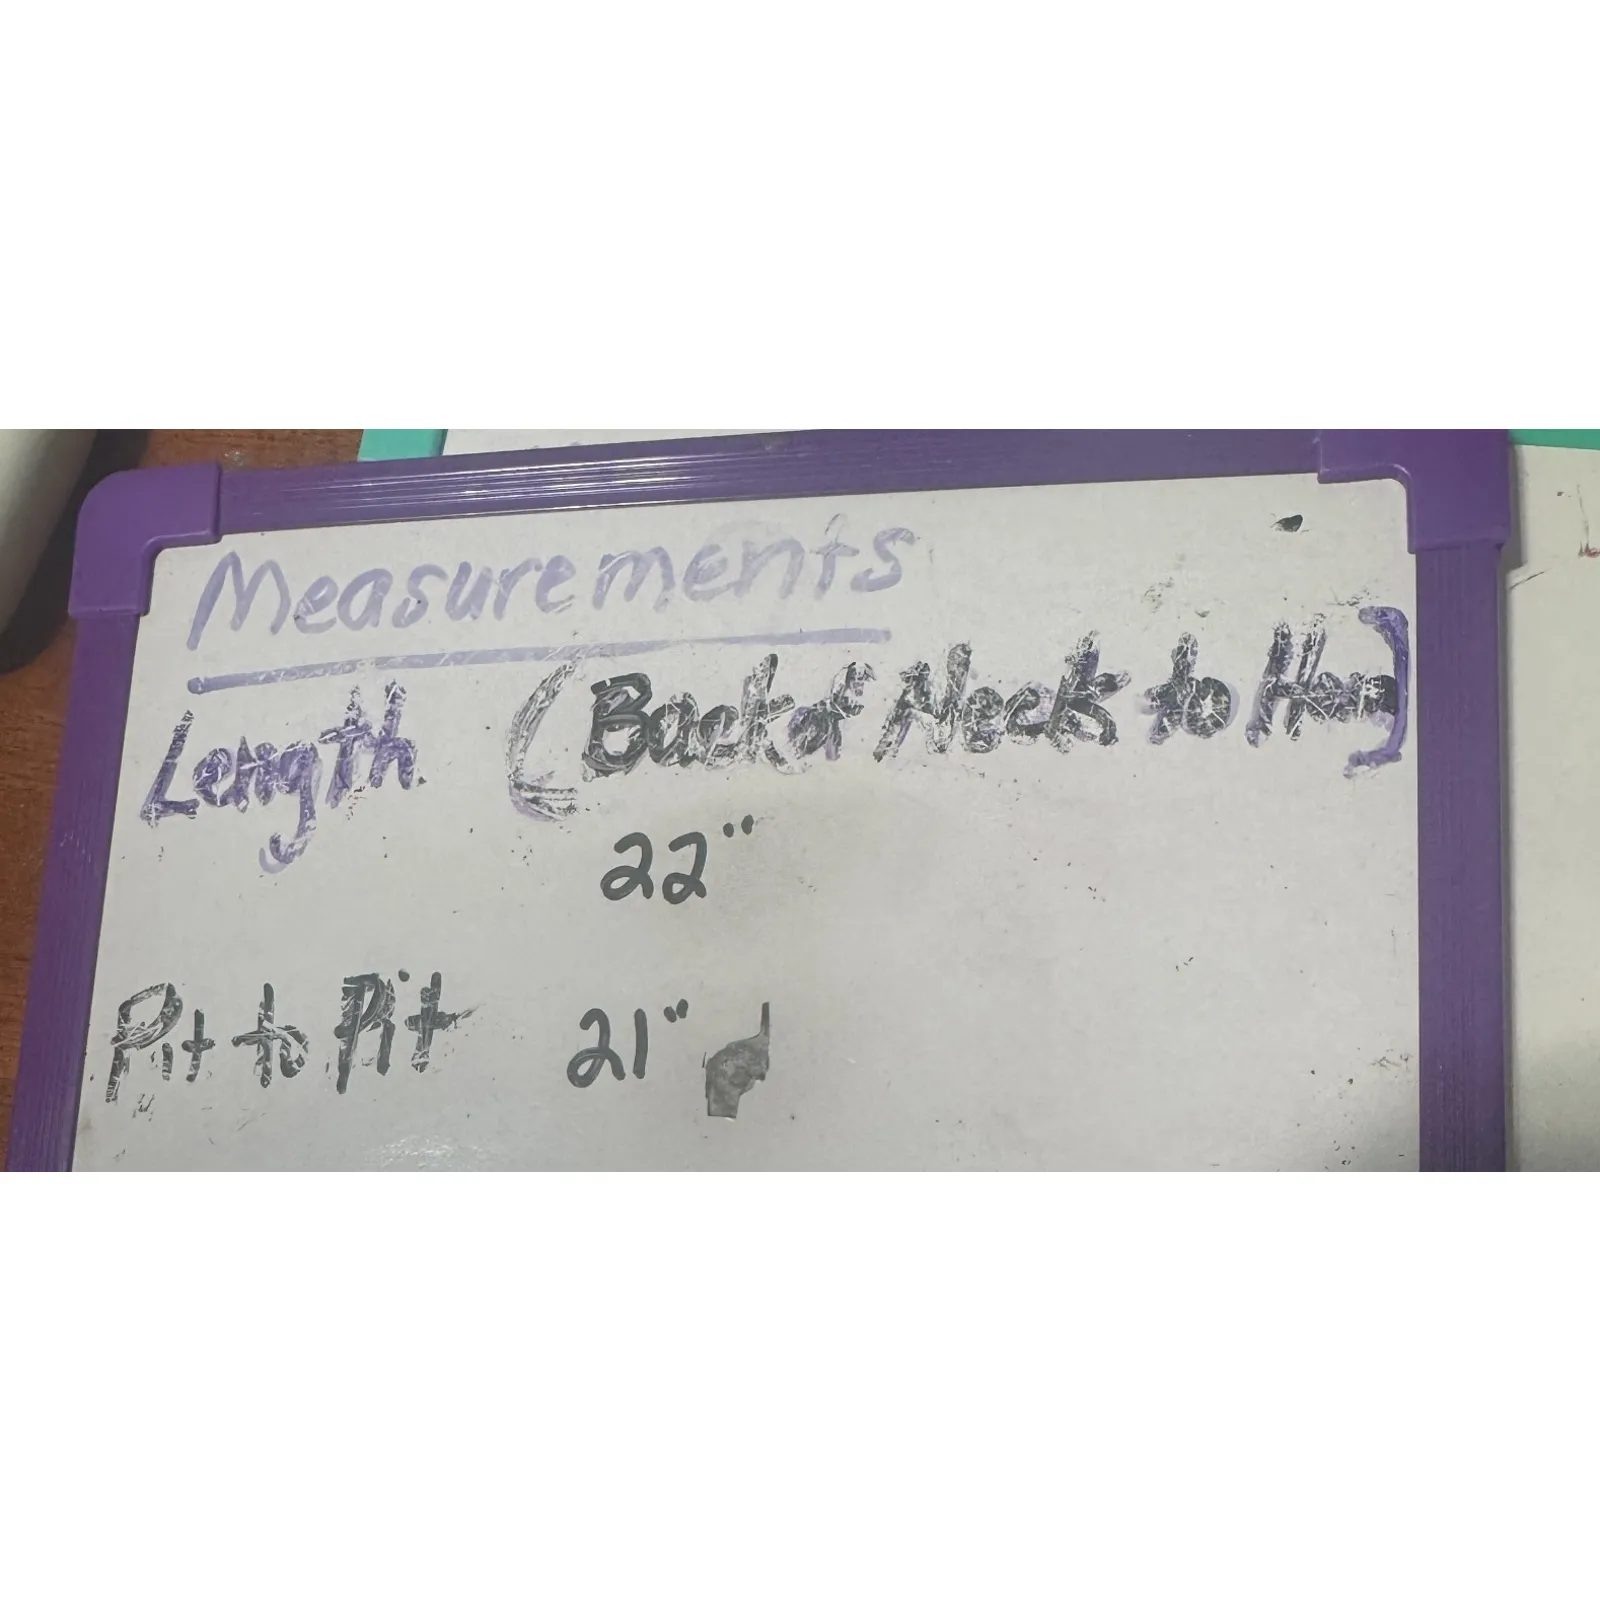 Measurements
Length (Back of Neck to Hem)
22"
Pit to Pit 21"